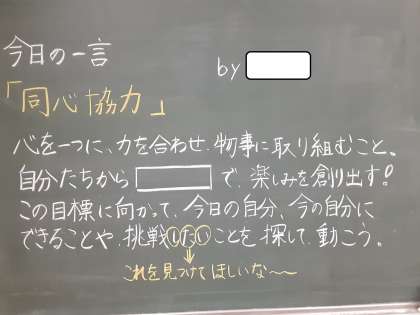 今日の一言
by
「同心協力」
心を一つに、力を合わせ、物事に取り組むこと。
自分たちから で、楽しみを創り出す!
この目標に向かって、今日の自分、今の自分に
できることや、挑戦したいことを探して、動こう。
これを見つけてほしいな〜〜